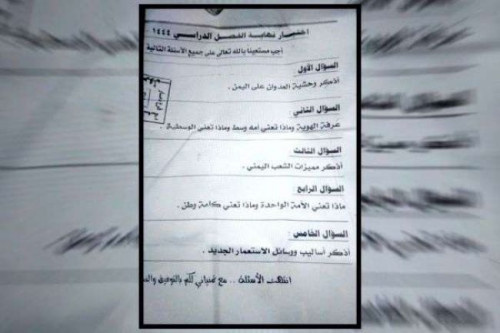 اختبار نهاية الفصل الدراسي ١٤٤٤
أجب مستعينا بالله تعالى على جميع الأسئلة التالية
السؤال الأول
أذكر وحشية العدوان على اليمن .
السؤال الثاني
عرفة الهوية وماذا تعني أمه وسط وماذا تعني الوسطية .
السؤال الثالث
أذكر مميزات الشعب اليمني .
السؤال الرابع
ماذا تعني الأمة الواحدة وماذا تعني كلمة وطن .
السؤال الخامس :
أذكر أساليب ووسائل الاستعمار الجديد .
انتهت الأسئلة .. مع تمنياتي لكم بالتوفيق